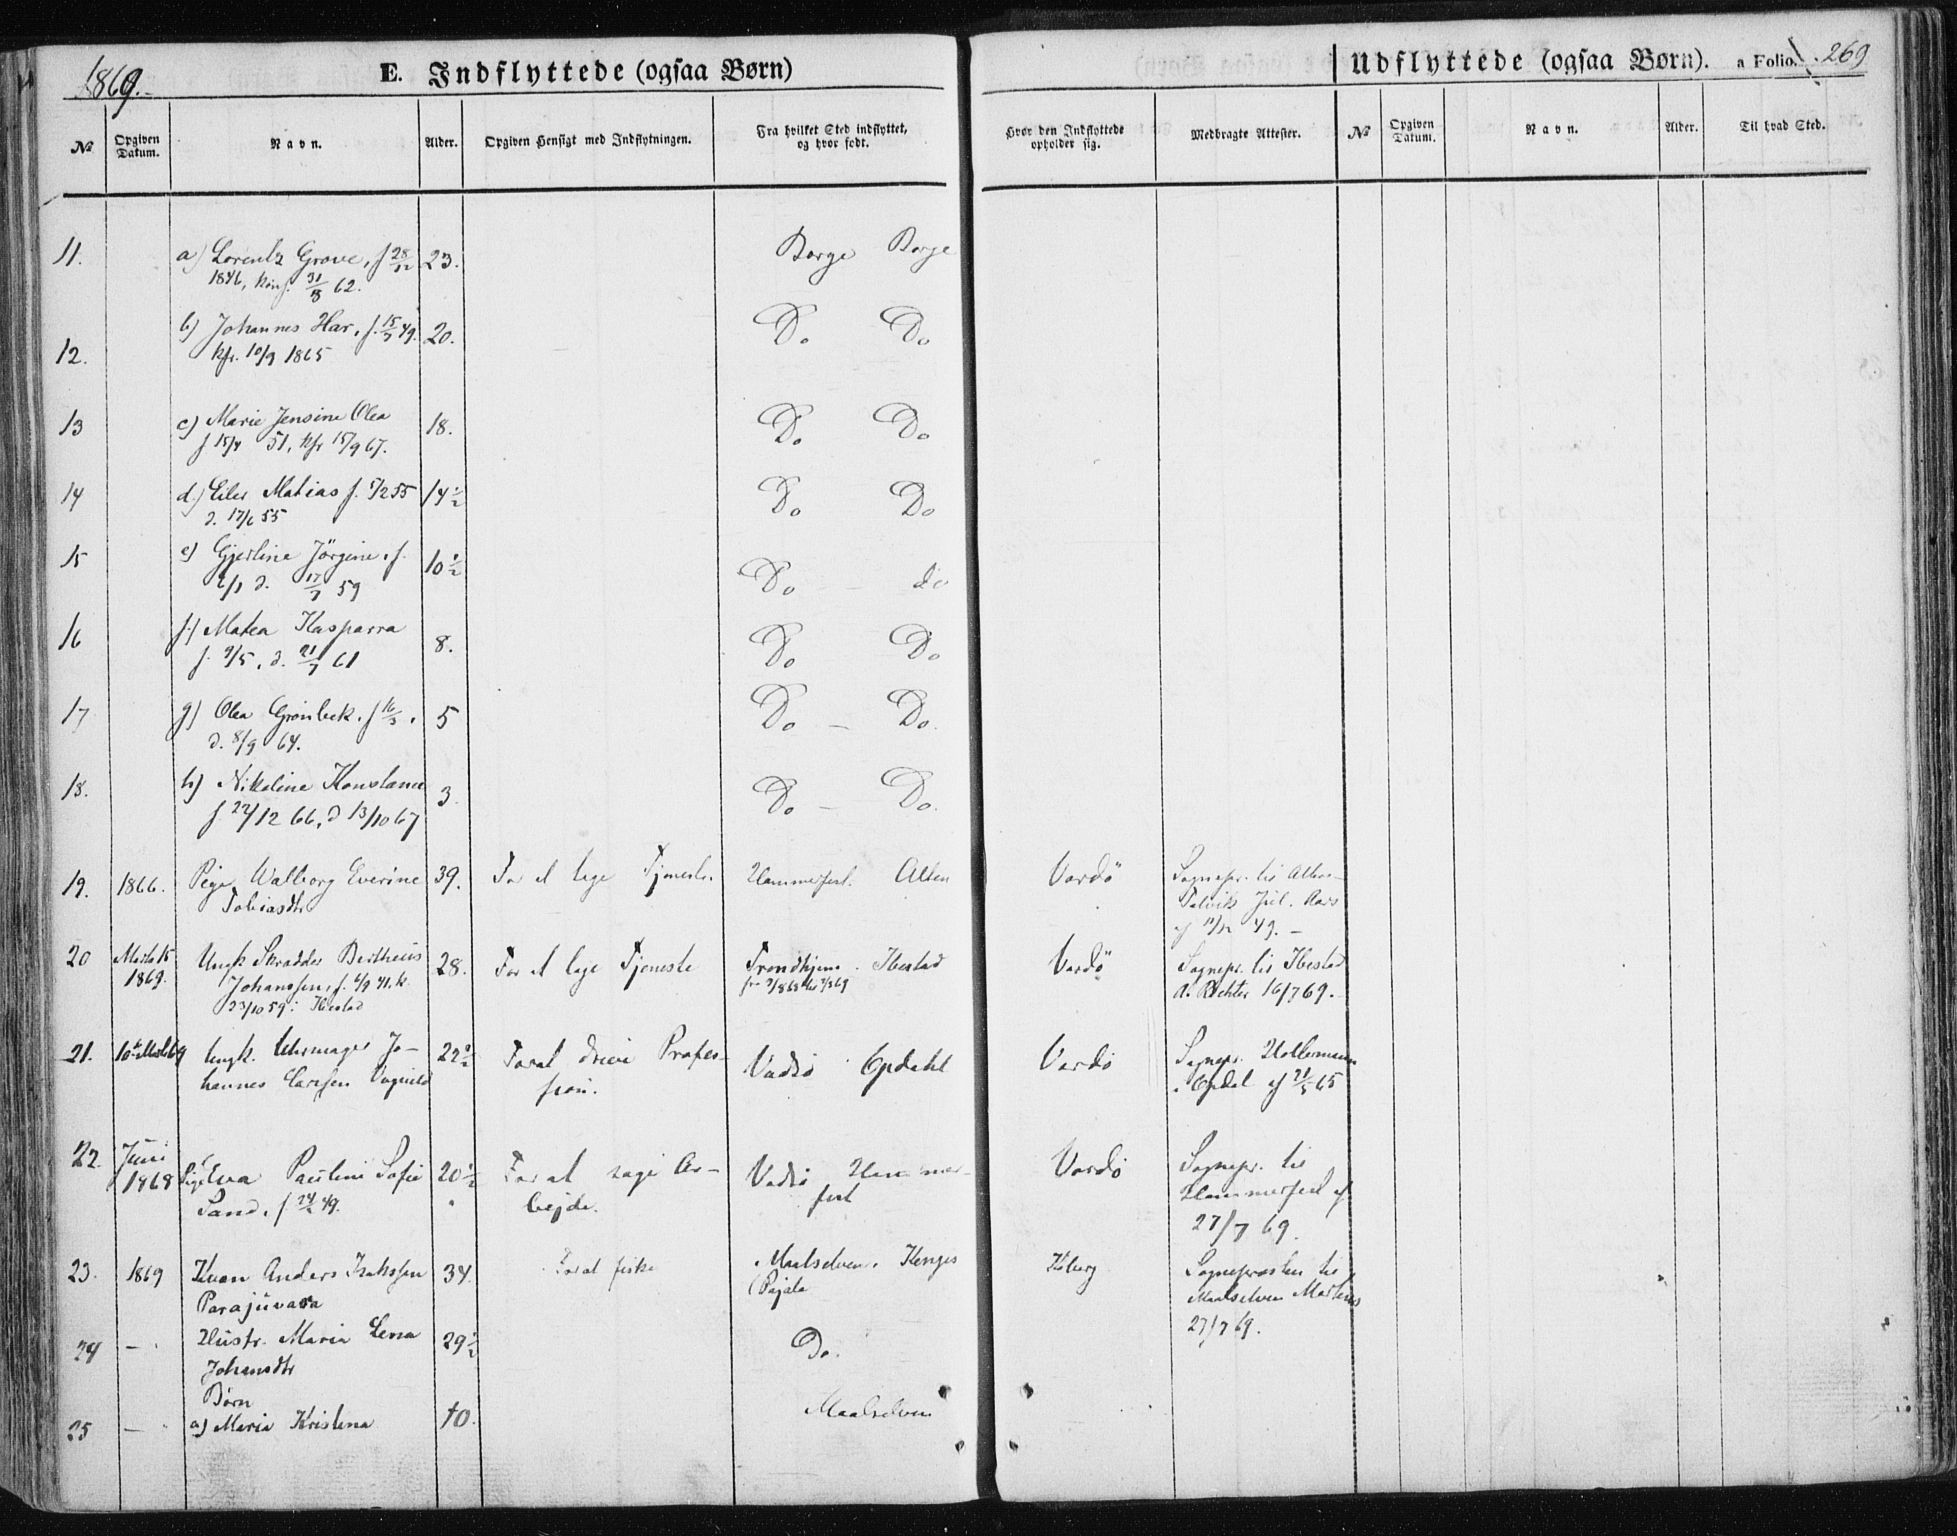 1869.
E. Indflyttede (ogsaa Børn)
Udflyttede (ogsaa Børn). a Folio. 269
№ Opgiven Datum. Navn. Alder. Opgiven Hensigt med Indflytningen. Fra hvilket Sted indflyttet, og hvor født. Hvor den Indflyttede opholder sig. Medbragte Attester. № Opgiven Datum. Navn. Alder. Til hvad Sted.
11. a) Lorentz Grove, f 28/12 23. Borge Borge
1846, konf. 62.
12. b) Johannes Har, f. 15/3 49. 20. Do Do
kfr. 10/9 1865
13 c) Marie Jensine Olea 18. Do Do
f 15/4 51, kfr 15/9 67.
14 d.) Eiler Matias f. 7/2 55 14 1/2 Do Do
d. 17/6 55
15 e) Gjertine Jörgine, f. 10 1/2 Do - do
d. 17/7 59
16 f.) Matea Kasparra 8. Do Do
f. 9/5, d. 21/7 61
17 g) Olea Grønbek, f 16/3, 5 Do - Do.
d. 8/9 64.
18. h) Nikoline Konstance 3. Do - Do.
f 22/12 66, d 13/10 67
19. 1866. Pige Walborg Everine 39. For at tage Tjeneste. Hammerfest. Alten Vardö Sognepr. til Alten-
Tobiasdtr Talvik Jul. Aars
49. -
20 1869. Ungk Skrædder Bertheus 28. For at tage Tjeneste Trondhjem. Ibestad Vardö Sognepr. til Ibestad
Johanssen, f. 4/9 41. k. 16/7 69.
23/10 59 i Ibestad
21. Ungk. Uhrmager Jo- 22 1/2 For at drive Profes- Vadsö Opdahl Vardö Sognepr.
hannes Larssen sion. i Opdal af 21/5 65
22. Juni Pige Eva Pauline Sofie 20 1/2 For at søge Ar- Vadsö Hammer- Vardö Sognepr. til
1868 Sand, f 24/2 49. bejde. fest Hammerfest af
27/7 69.
23. 1869 Kvæn Anders Isakssen 34. For at fiske Maalselven. Kenges Kiberg Sognepræsten til
Parajüvara (Pajala Maalselven
27/7 69.
24 - . Hustr. Maria Lena 29 1/2 Do.
Johansdtr
Børn
25 - a) Maria Kristina 10. Maalselven